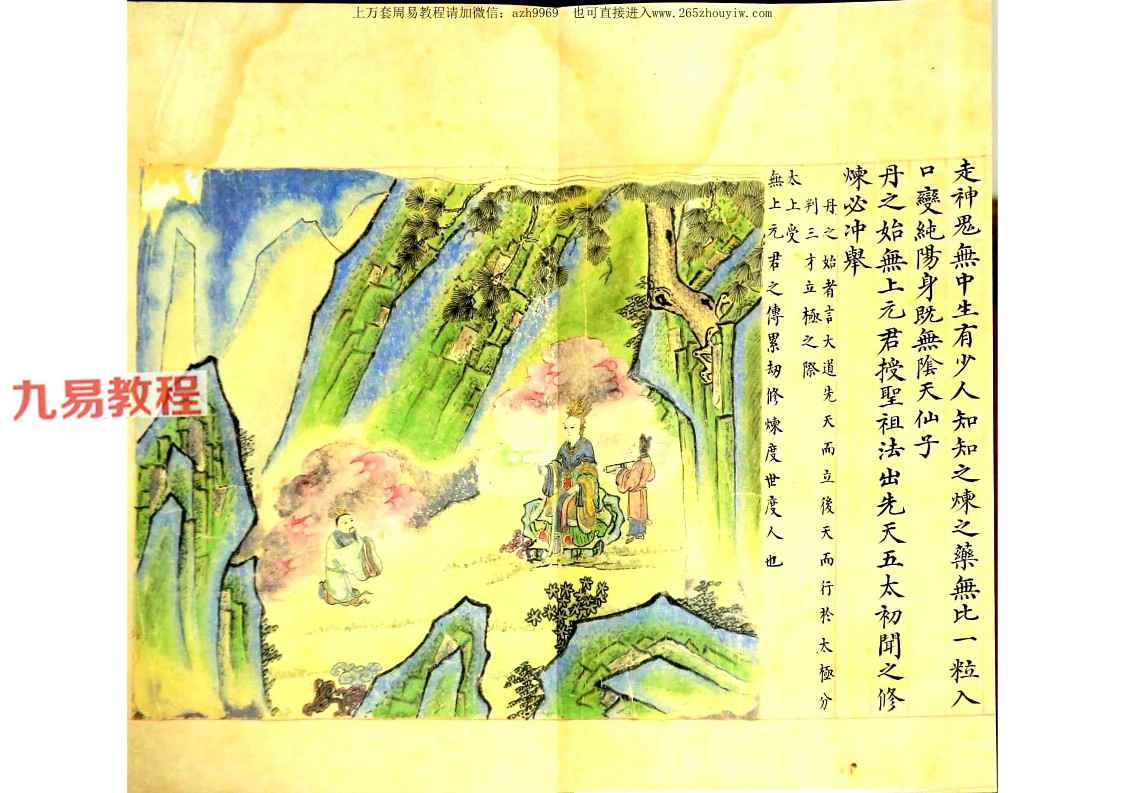 上万套周易教程请加微信：azh9969　也可直接进入www.265zhouyiw.com
走神鬼無中生有少人知知之煉之藥無比一粒入
口變純陽身既無陰天仙子
丹之始無上元君授聖祖法出先天五太初聞之修
煉必冲舉
丹之始者言大道先天而立後天而行於太極分
判三才立極之際
太上受
無上元君之傳累劫修煉度世度人也
九易教程